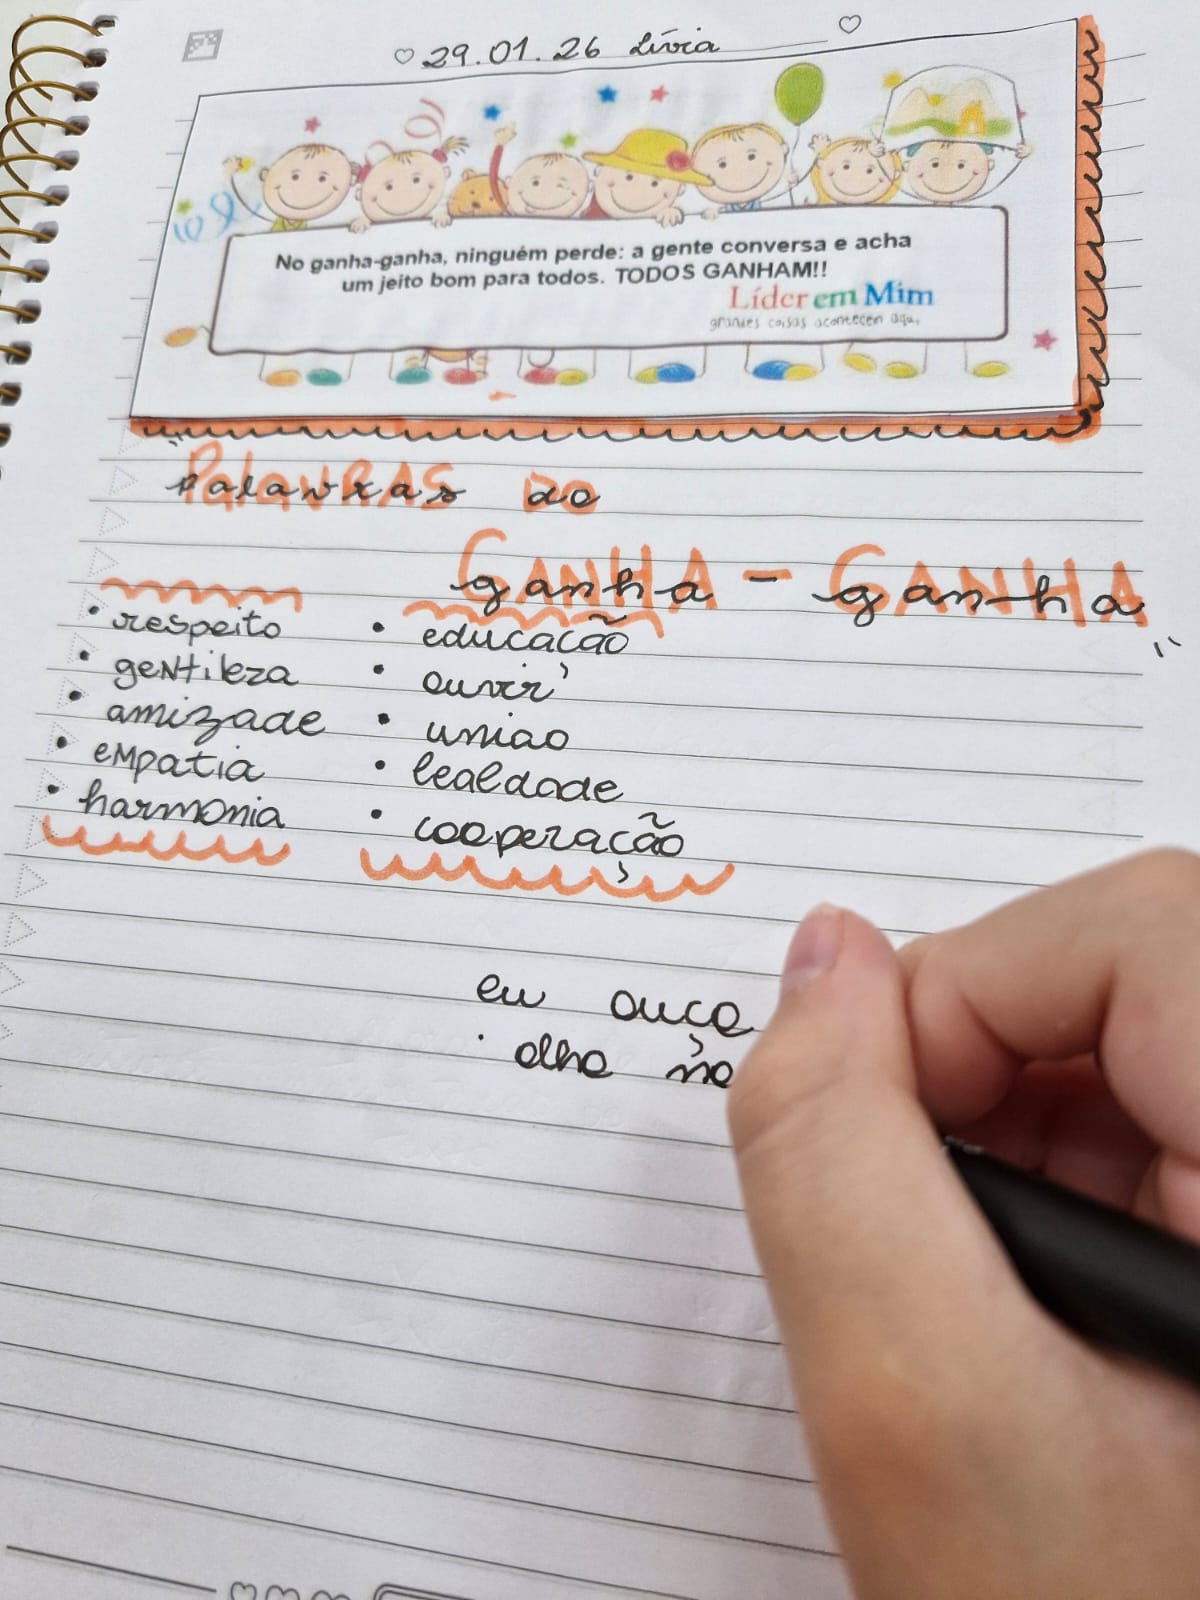 29.01.26 Lívia
No ganha-ganha, ninguém perde: a gente conversa e acha
um jeito bom para todos. TODOS GANHAM!!
Líder em Mim
grandes coisas acontecem aqui,
"Palavras do
ganha - ganha"
• respeito
• gentileza
• amizade
• empatia
• harmonia
• educação
• ouvir
• uniao
• lealdade
• cooperação
eu ouço
olho no